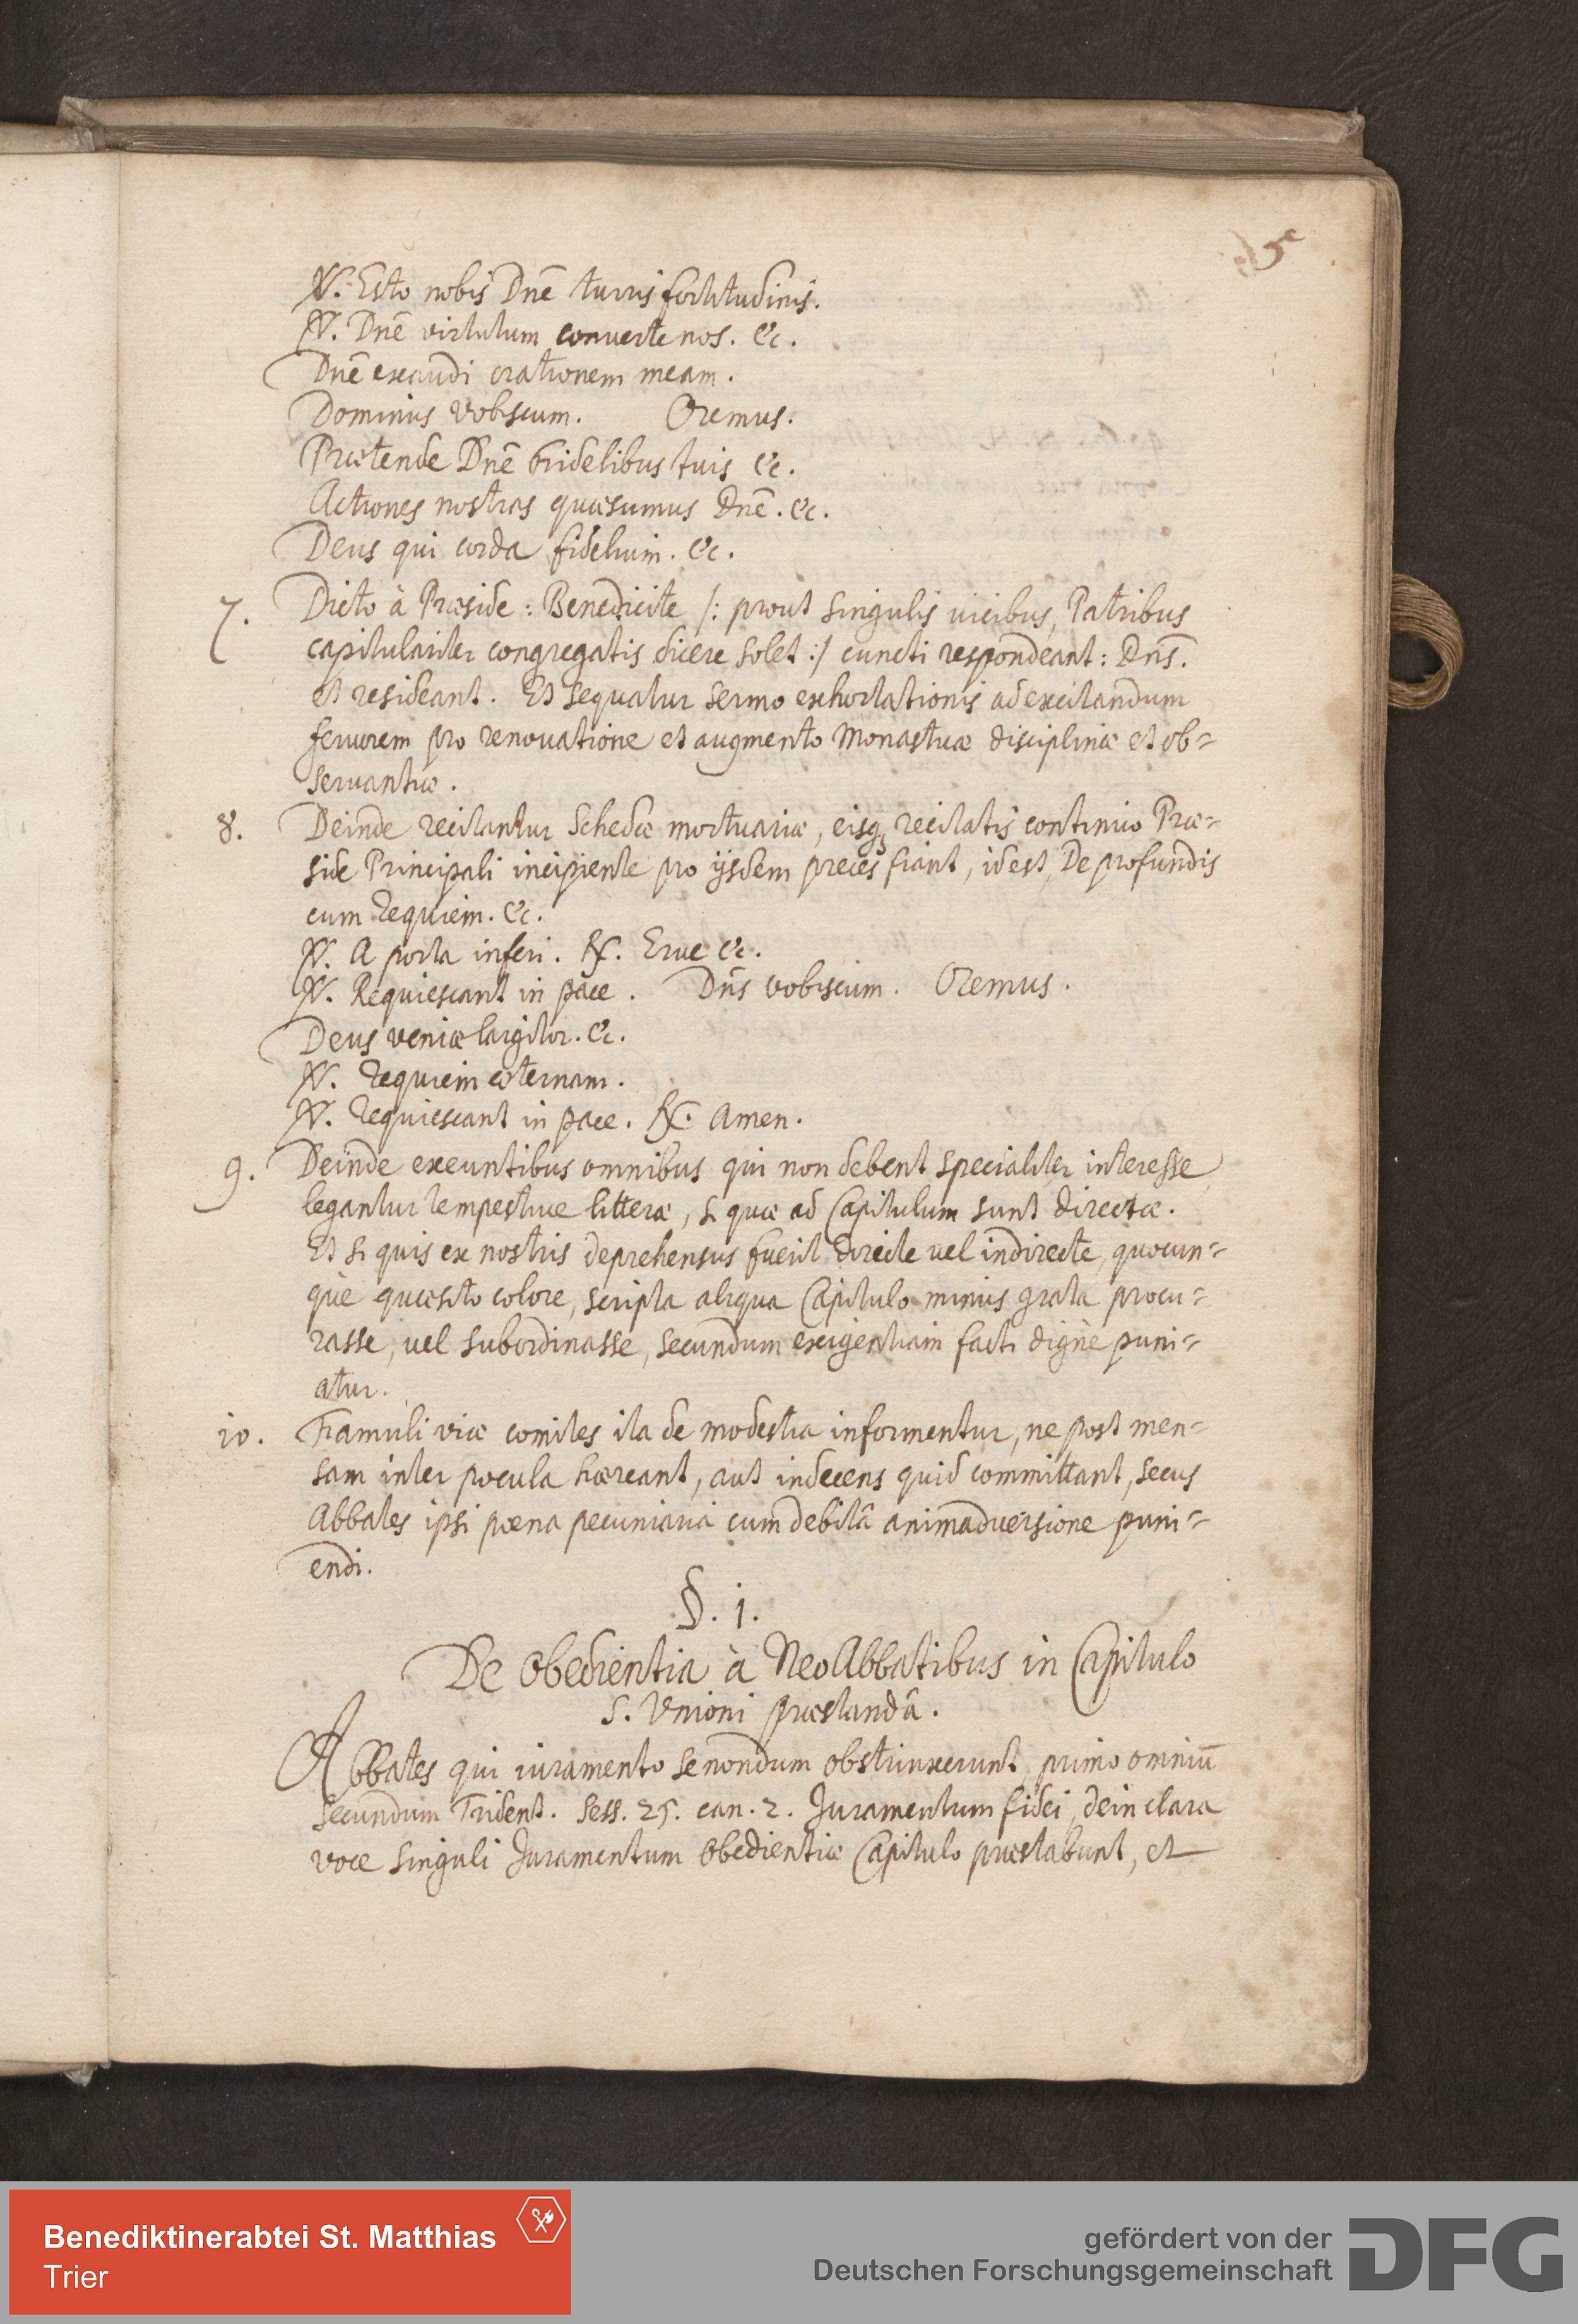 5
℣. Esto nobis Dnē turris fortitudinis.
℣. Dnē virtutum converte nos. &c.
Dnē exaudi orationem meam.
Dominus vobiscum. Oremus.
Prætende Dnē Fidelibus tuis &c.
Actiones nostras quæsumus Dnē. &c.
Deus qui corda fidelium. &c.
7. Dicto à Præside: Benedicite /: prout singulis vicibus, Patribus
capitulariter congregatis dicere solet :/ cuncti respondeant: Dn̄s.
et resideant. Et sequatur sermo exhortationis ad excitandum
feruorem pro renouatione et augmento Monasticæ disciplinæ et ob=
seruantiæ.
8. Deinde recitantur Schedæ mortuariæ, eisq; recitatis continuo Præ=
side Principali incipiente pro ijsdem preces fiant, id est, De profundis
cum requiem. &c.
℣. A porta inferi. ℟. Erue &c.
℣. Requiescant in pace. Dn̄s vobiscum. Oremus.
Deus veniæ largitor. &c.
℣. requiem æternam.
℣. requiescant in pace. ℟. Amen.
9. Deinde exeuntibus omnibus qui non debent specialiter interesse
legantur tempestiue litteræ, si quæ ad Capitulum sunt directæ.
Et si quis ex nostris deprehensus fuerit directe uel indirecte, quocun=
què quæsito colore, scripta aliqua Capitulo minus grata procu=
rasse, uel subordinasse, secundum exigentiam facti dignè puni=
atur.
10. Famuli viæ comites ita de modestia informentur, ne post men=
sam inter pocula hæreant, aut indecens quid committant, secus
Abbates ipsi pœna pecuniaria cum debitâ animaduersione puni=
endi.
§. 1.
De Obedientia à NeoAbbatibus in Capitulo
S. Vnioni præstandâ.
Abbates qui iuramento se nondum obstrinxerunt, primo omniū
secundum Trident. Sess. 25. can. 2. Juramentum fidei, dein clara
voce singuli Juramentum Obedientiæ Capitulo præstabunt, et
Benediktinerabtei St. Matthias
Trier
gefördert von der
Deutschen Forschungsgemeinschaft
DFG